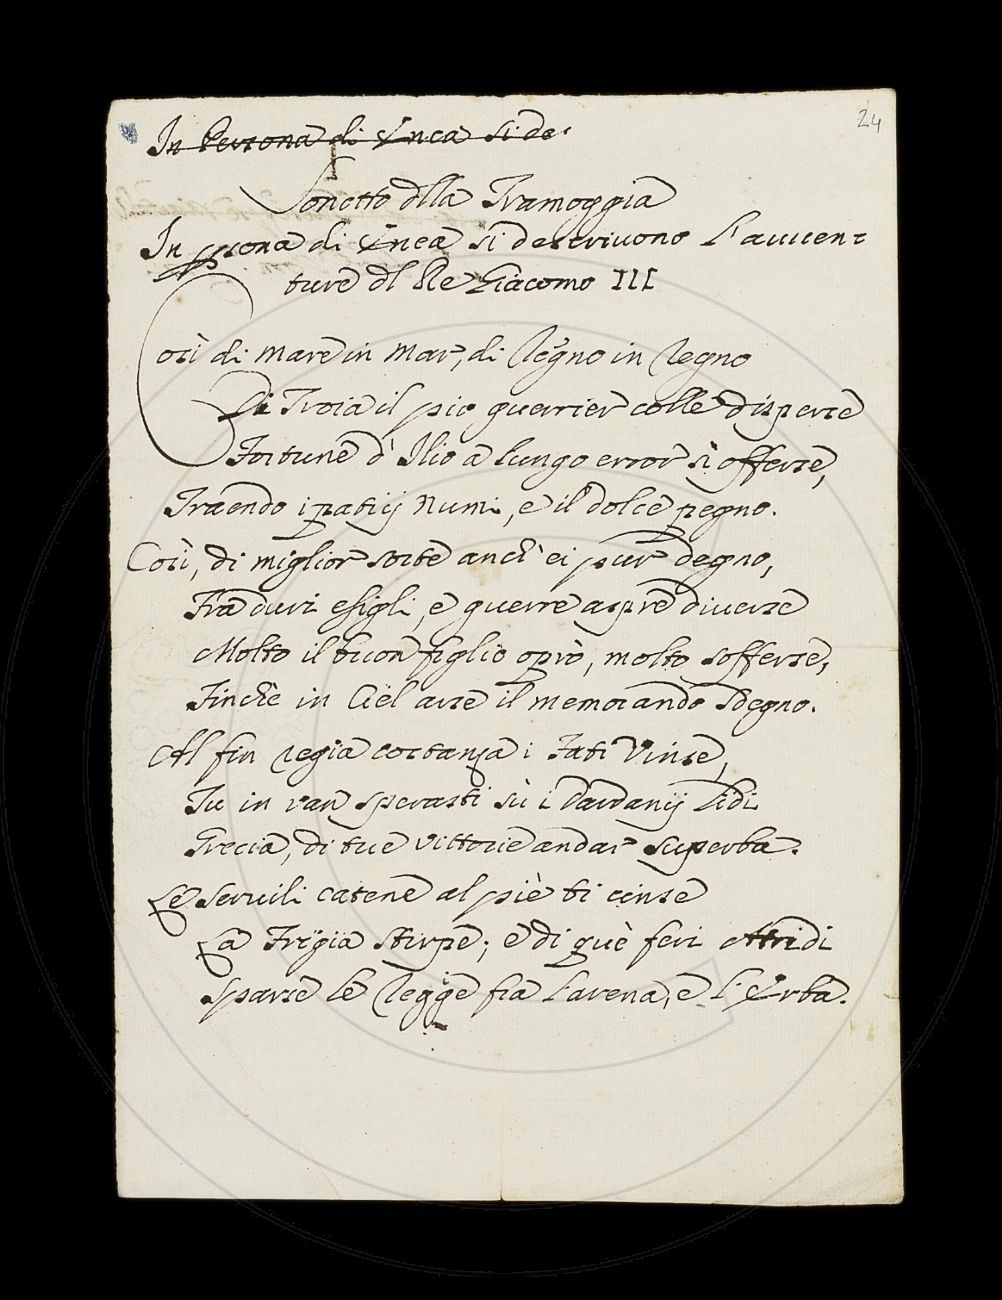 24
In Persona di Enea si de
Sonetto dlla Tramoggia
In psona di Enea si descrivono l'avven=
ture dl Re Giacomo III
Così di mare in mar, di legno in legno
Di Troia il pio guerrier colle disperse
Fortune d'Ilio a lungo error s'offerse,
Traendo i patrij Numi, e il dolce pegno.
Così, di miglior sorte anch'ei pur degno,
Fra duri esigli, e guerre aspre diverse
Molto il buon figlio oprò, molto sofferse,
Finche in Ciel arse il memorando sdegno.
Al fin regia costanza i Fati vinse,
Tu in van sperasti sù i Dardanij lidi
Grecia, di tue vittorie andar superba.
Le servili catene al piè ti cinse
La Frigia stirpe; e di què feri Atridi
Sparse le regge fia l'arena, e l'Erba.